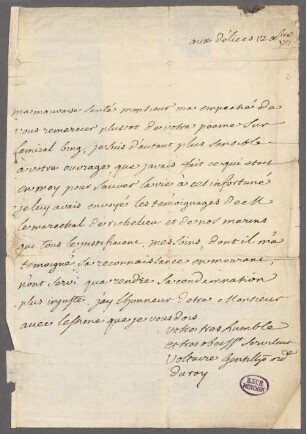 aux délices 12
ma mauvaise santé monsieur ma empeché de
vous remercier plustot de votre poeme sur
lamiral bing, je suis d'autant plus sensible
à votre ouvrage, que javais fait ce qui etait
en moy pour sauver la vie à cet infortuné
je luy avais envoyé les temoignages de M
le marechal de richelieu et de nos marins
qui tous le justifiaient, mes soins, dont il m'a
temoigné sa reconnaissance en mourant,
n'ont servi qua rendre sa condamnation
plus injuste. jay l'honneur detre Monsieur
avec lestime que je vous dois
votre tres humble
et tres obeiss^r serviteur
Voltaire gentilh ord^re
du roy